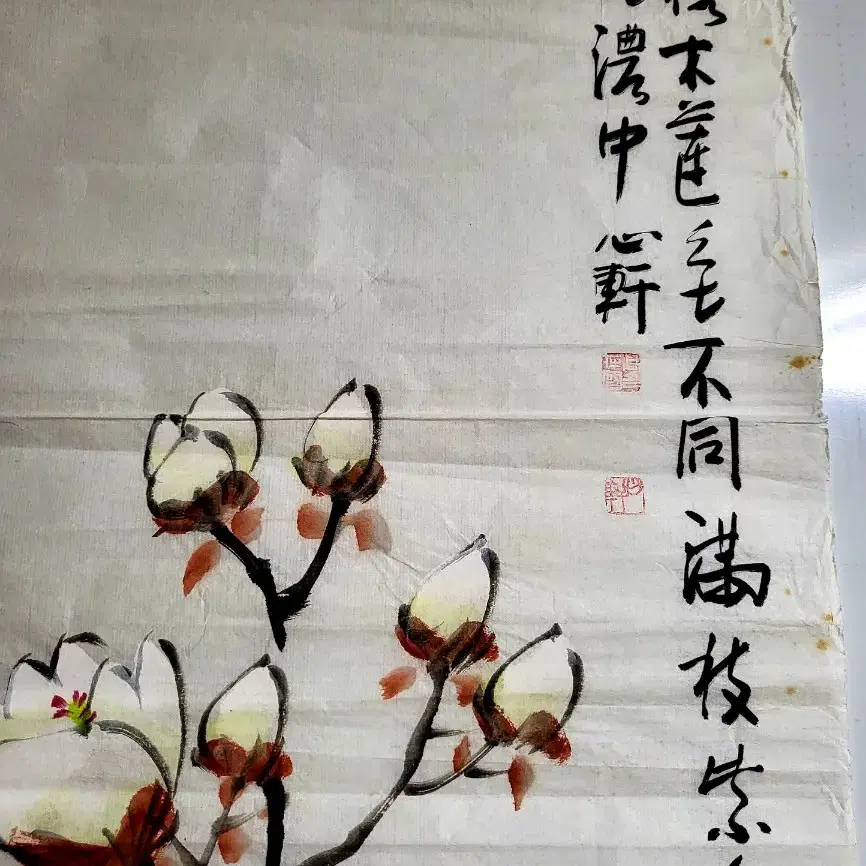 木蓮不同滿枝紫
濃中 心軒